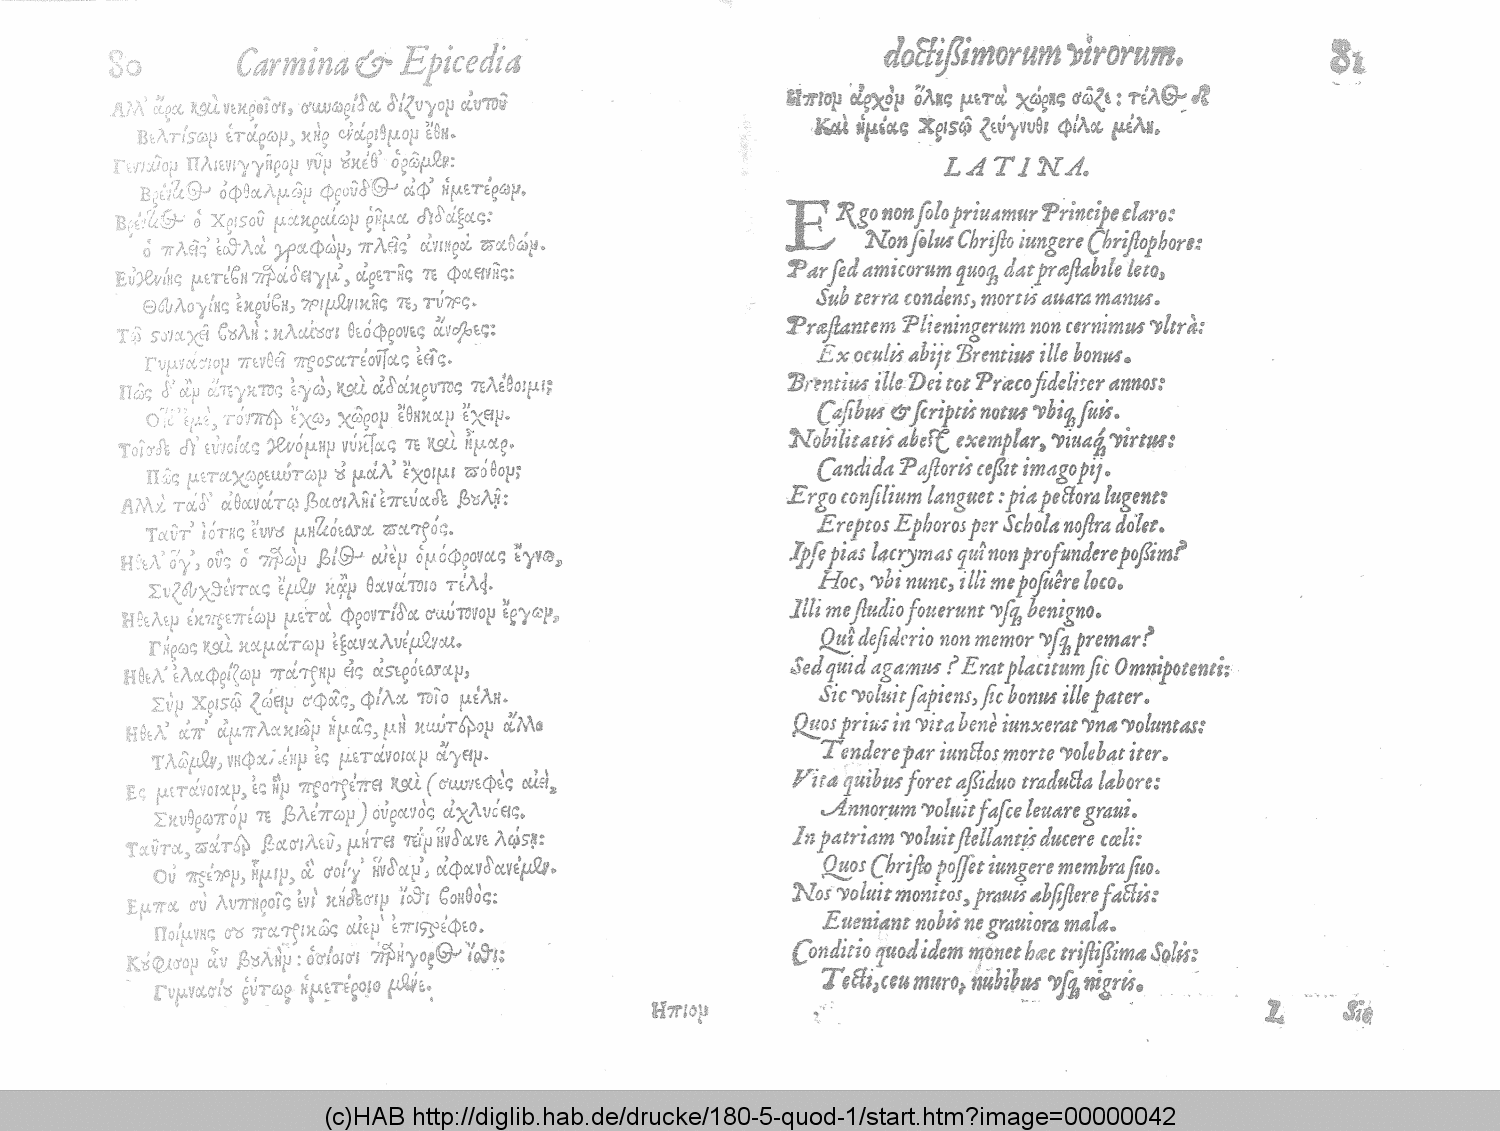 80 Carmina & Epicedia
Ἀλλ' ἄρα καὶ νεκροῖσι, σωωρίδα δίζυγον αὐτοῦ
Βελτίςων ἑτάρων, κὴρ ἐνάριθμον ἔθη.
Πλιενιγγῆρον νῦν ὀκέθ' ὁρῶμεν:
Βρέντιος ὀφθαλμῶν φροῦδος ἀφ' ἡμετέρων.
Βρέντιος ὁ Χριςοῦ μακραίων ῥῆμα διδάξας:
ὁ πλεῖς' ἐσθλὰ γραφὼν, πλεῖς' ἀνιηρὰ παθών.
μετέβη παράδειγμ', ἀρετῆς τε φαεινῆς:
Θευλογίης ἐκρύβη, ποιμενικῆς τε, τύπος.
Τῷ ςοναχεῖ βουλὴ: κλαίουσι θεόφρονες ἄνδρες:
Γυμνάσιον πενθεῖ προςατέοντας ἑοῖς.
Πῶς δ' ἂν ἄτεγκτος ἐγὼ, καὶ ἀδάκρυτος πελέθοιμι;
ἐμὲ, τόνπερ ἔχω, χῶρον ἔθηκαν ἔχειν.
Τοῖσδε δι' εὐνοίας χενόμην νύκτας τε καὶ ἦμαρ.
Πῶς μεταχωρεώντων οὐ μάλ' ἔχοιμι πόθον;
Ἀλλὰ τάδ' ἀθανάτῳ βασιλῆϊ ἐπεύαδε βουλῇ:
Ταῦτ' ἰότης ἔννου μητιόεντα πατρός.
Ἤθελ' ὅγ', οὓς ὁ παρὼν βίος αἰὲν ὁμόφρονας ἔγνω,
Συζευχθέντας ἔμεν κἂν θανάτοιο τέλει.
Ἤθελεν ἐκπρεπέων μετὰ φροντίδα σύντονον ἔργων,
Γήρως καὶ καμάτων ἐξαναλυέμεναι.
Ἤθελ' ἐλαφρίζων πάτρην εἰς ἀςερόεσσαν,
Σὺν Χριςῷ ζώειν σφᾶς, φίλα τοῖο μέλη.
Ἤθελ' ἀπ' ἀμπλακιῶν ἡμᾶς, μὴ κύντερον ἄλλο
Τλῶμεν, ἐς μετάνοιαν ἄγειν.
Ἐς μετάνοιαν, ἐς ἣν προτρέπει καὶ (σωνεφὲς αἰεὶ,
Σκυθρωπόν τε βλέπων) οὐρανὸς ἀχλυόεις.
Ταῦτα, πάτερ βασιλεῦ, μήτε πέρ ἥνδανε λῴςη:
Οὐ πρέπον, ἧμιν, ἃ σοί γ' ἥνδαν', ἀφανδανέμεν.
Ἔμπα σὺ λυπηροῖς ἐνὶ κήδεσιν ἴσθι βοηθὸς:
Ποίμνης σου πατρικῶς αἰὲν ἐπιςρέφεο.
Κούφισον ἂν βουλὴν: ὁσίοισι παρήγορος ἴσθι:
Γυμνασίου ῥύτωρ ἡμετέροιο μένε.
Ἤπιον
doctissimorum virorum. 81
Ἤπιον ἀρχὸν ὅλης μετὰ χώρης σῶζε: τέλος δὲ
Καὶ ἡμέας Χριςῷ ζεύγνυθι φίλα μέλη.
LATINA.
ERgo non solo priuamur Principe claro:
Non solus Christo iungere Christophore:
Par sed amicorum quoq; dat præstabile leto,
Sub terra condens, mortis auara manus.
Præstantem Plieningerum non cernimus vltrà:
Ex oculis abijt Brentius ille bonus.
Brentius ille Dei tot Præco fideliter annos:
Casibus & scriptis notus vbiq; suis.
Nobilitatis abest exemplar, viuaq́; virtus:
Candida Pastoris cessit imago pij.
Ergo consilium languet: pia pectora lugent:
Ereptos Ephoros per Schola nostra dolet.
Ipse pias lacrymas quî non profundere possim?
Hoc, vbi nunc, illi me posuêre loco.
Illi me studio fouerunt vsq; benigno.
Quî desiderio non memor vsq; premar?
Sed quid agamus? Erat placitum sic Omnipotenti:
Sic voluit sapiens, sic bonus ille pater.
Quos prius in vita benè iunxerat vna voluntas:
Tendere par iunctos morte volebat iter.
Vita quibus foret assiduo traducta labore:
Annorum voluit fasce leuare graui.
In patriam voluit stellantis ducere cœli:
Quos Christo posset iungere membra suo.
Nos voluit monitos, prauis absistere factis:
Eueniant nobis ne grauiora mala.
Conditio quod idem monet hæc tristissima Solis:
Tecti, ceu muro, nubibus vsq; nigris.
L Sic
(c)HAB http://diglib.hab.de/drucke/180-5-quod-1/start.htm?image=00000042